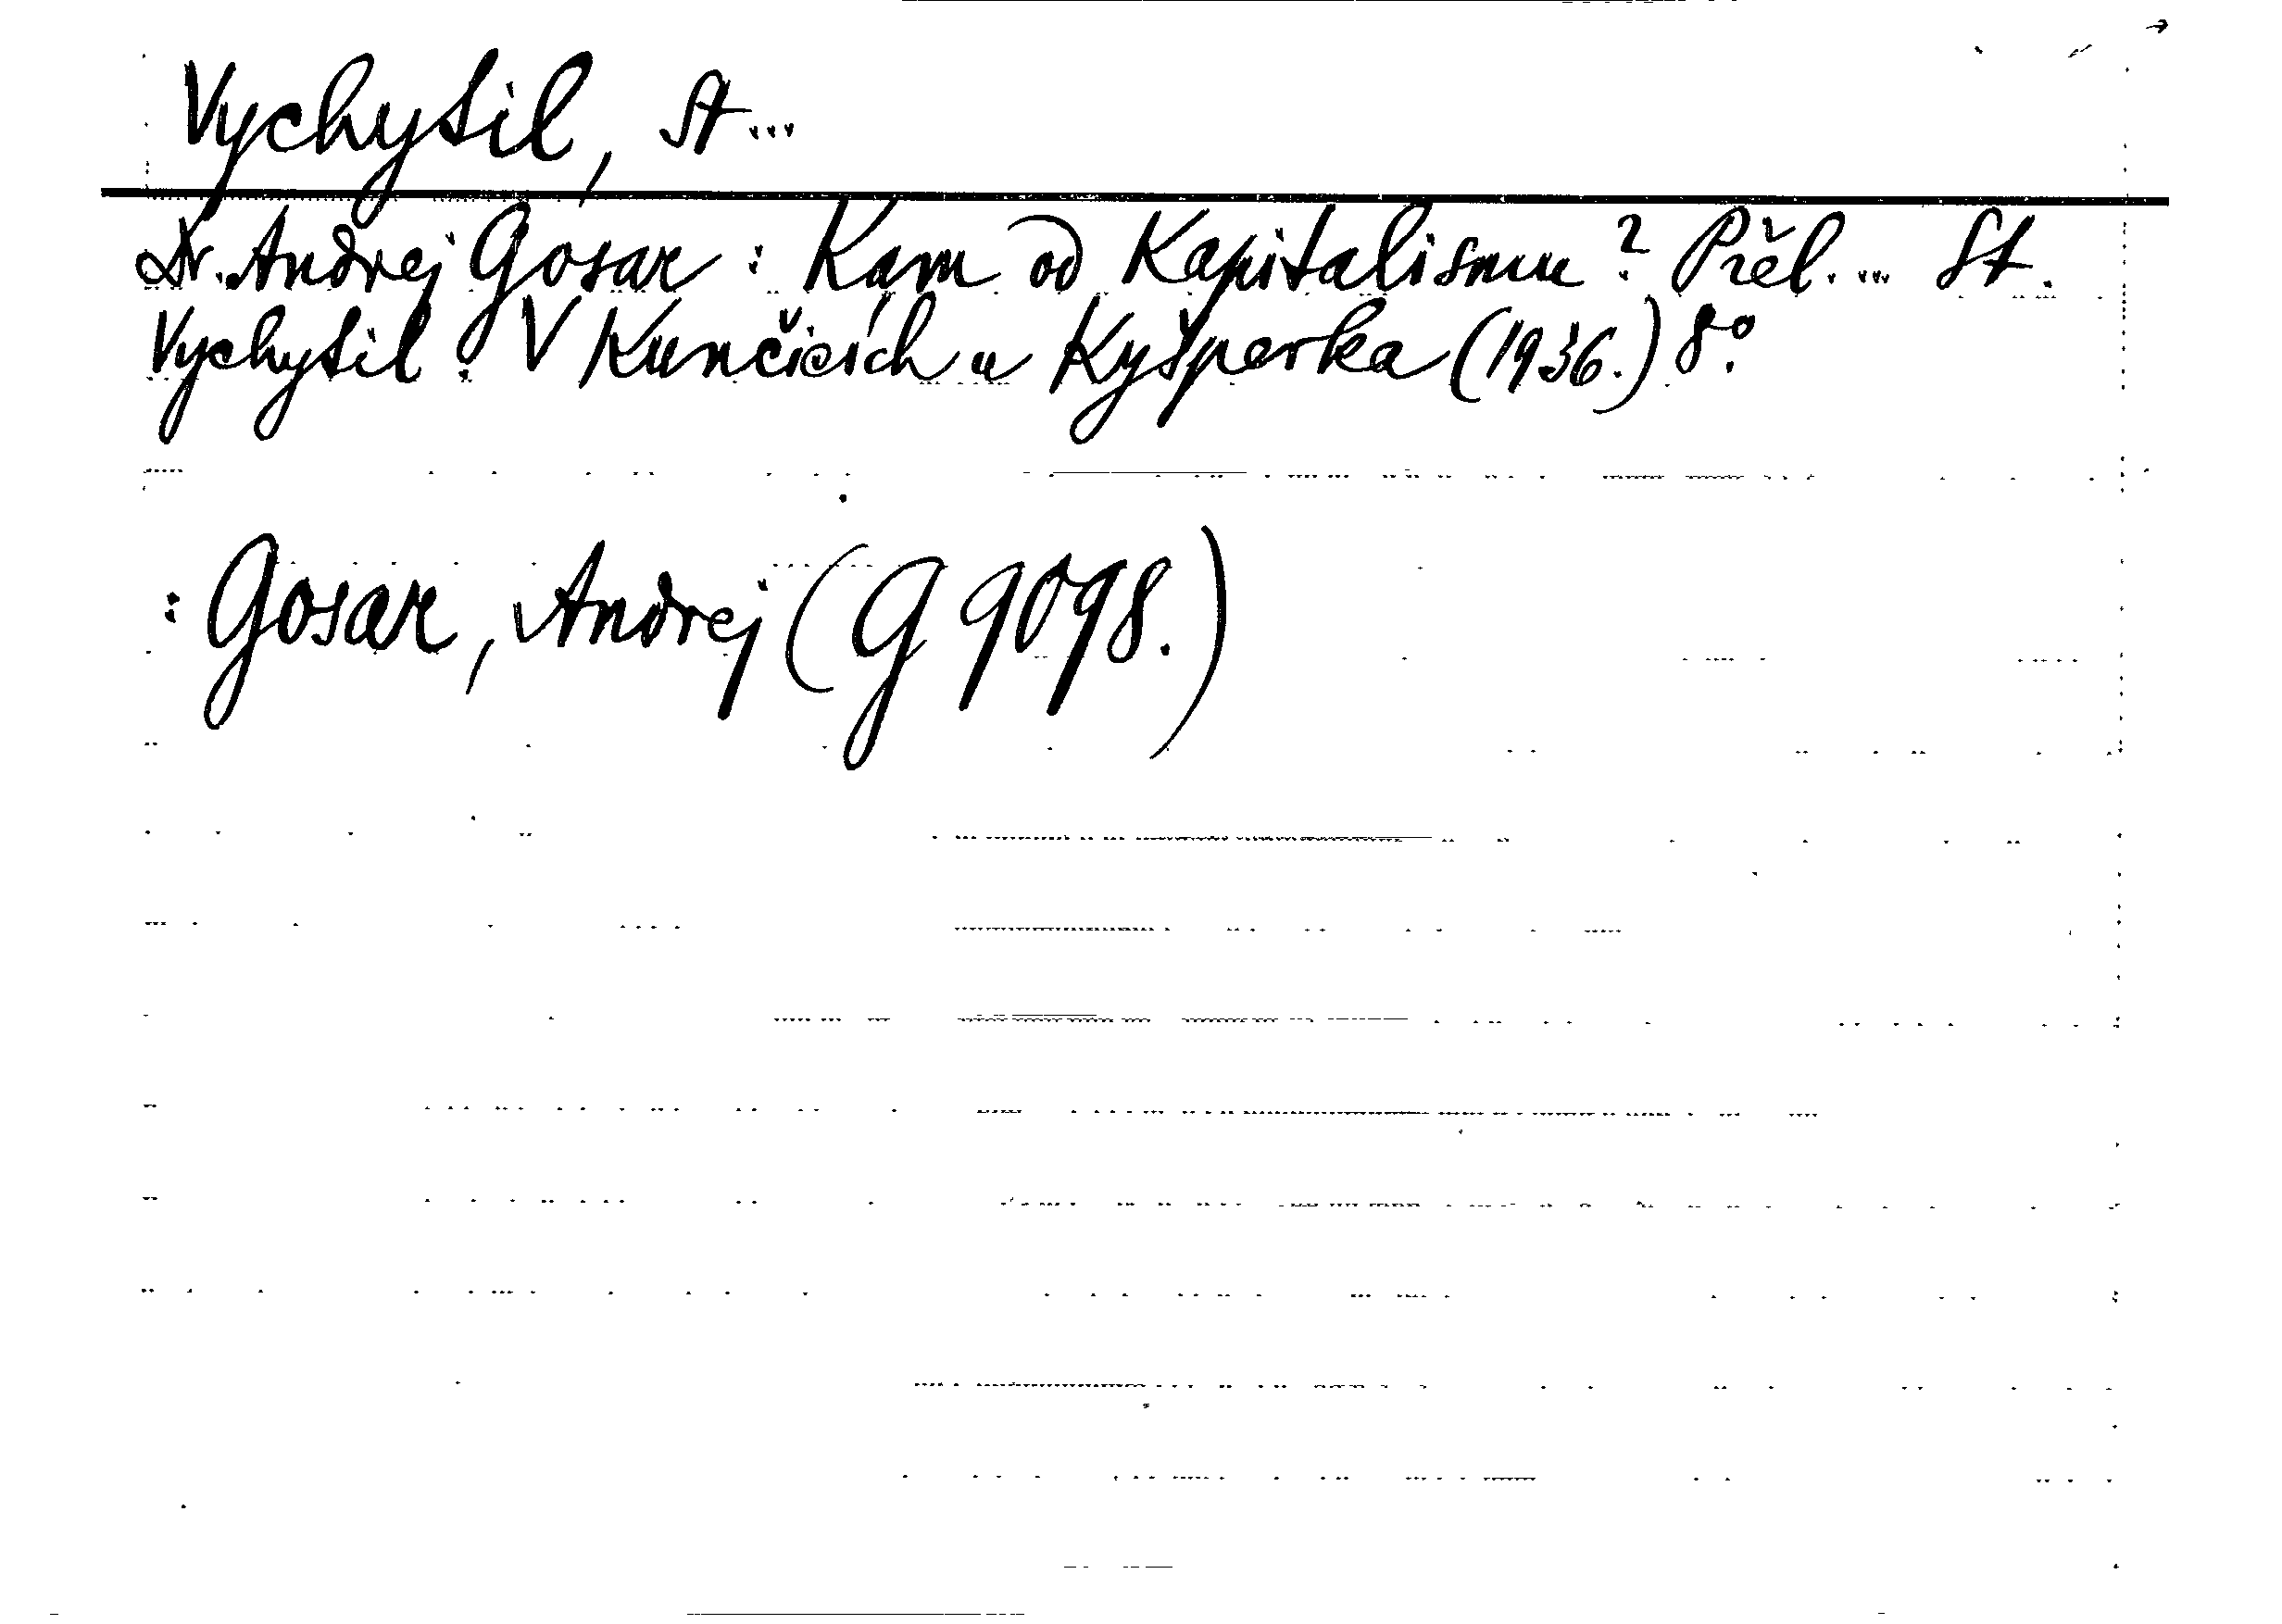 Vychytil, St...
Dr. Andrej Gosar : Kam od Kapitalismu? Přel.... St.
Vychytil. V Kunčicích u Kyšperka (1936.) 8°.
: Gosar, Andrej (G 9098.)